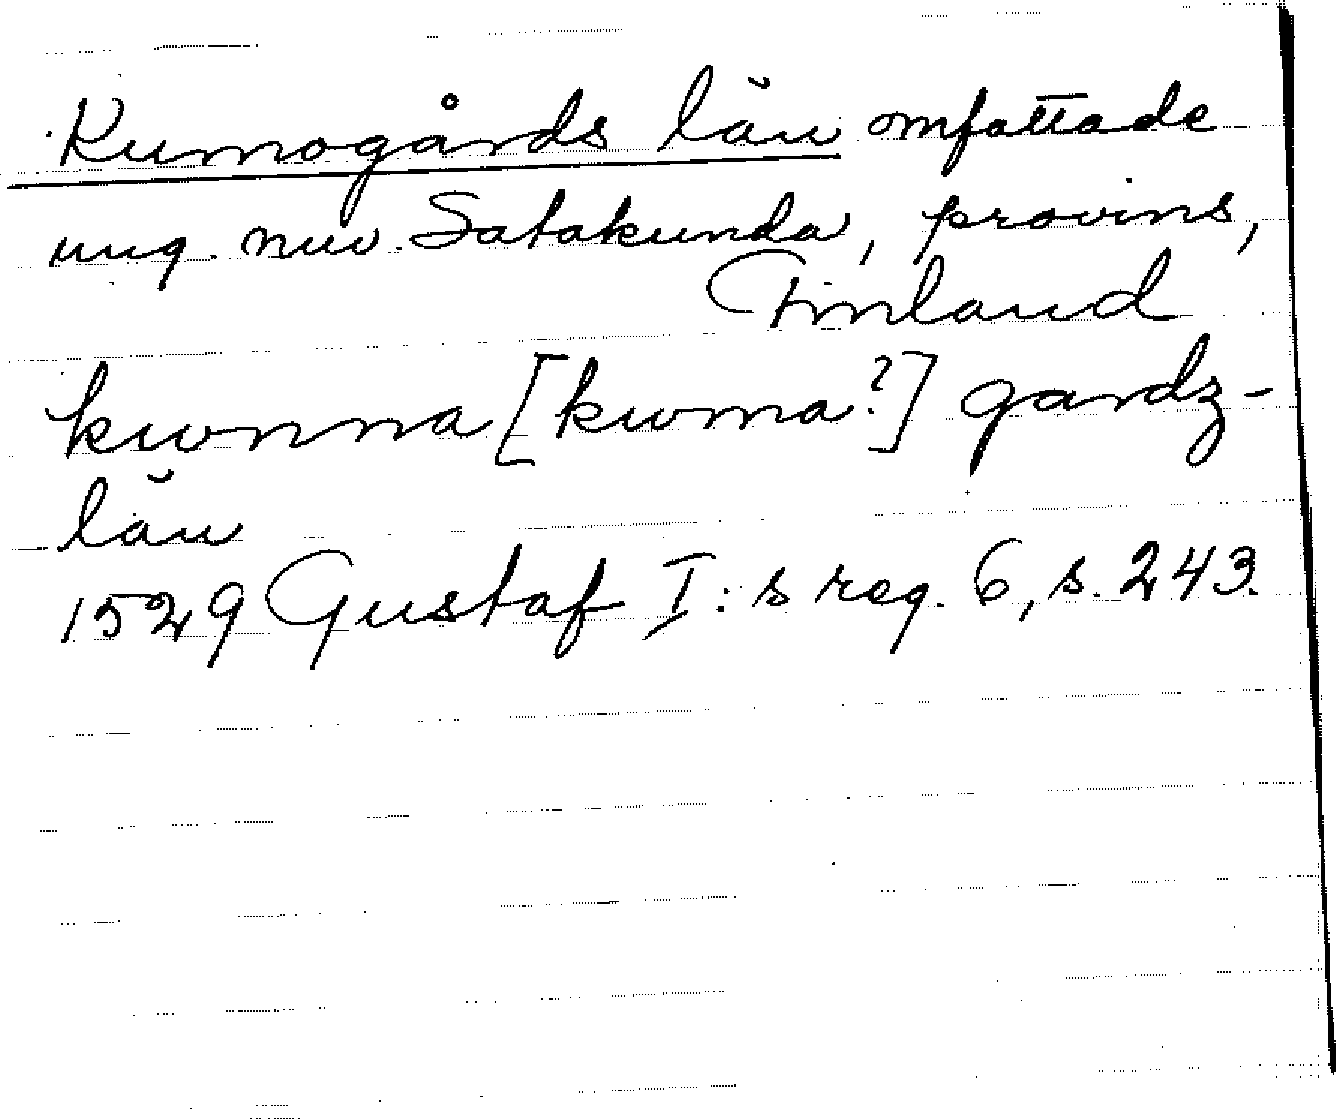 Kumogårds län omfattade
ung. nuv. Satakunda, provins,
Finland
kwnna [kwma?] gardz-
län
1529 Gustaf I:s reg. 6, s. 243.